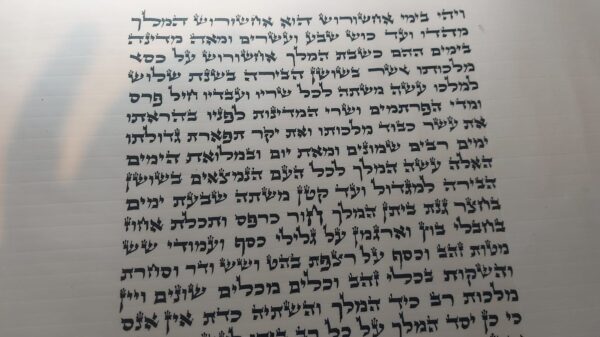 ויהי בימי אחשורוש הוא אחשורוש המלך
מהדו ועד כוש שבע ועשרים ומאה מדינה
בימים ההם כשבת המלך אחשורוש על כסא
מלכותו אשר בשושן הבירה בשנת שלוש
למלכו עשה משתה לכל שריו ועבדיו חיל פרס
ומדי הפרתמים ושרי המדינות לפניו בהראתו
את עשר כבוד מלכותו ואת יקר תפארת גדולתו
ימים רבים שמונים ומאת יום ובמלואת הימים
האלה עשה המלך לכל העם הנמצאים בשושן
הבירה למגדול ועד קטן משתה שבעת ימים
בחצר גנת ביתן המלך חור כרפס ותכלת אחוז
בחבלי בוץ וארגמן על גלילי כסף ועמודי שש
מטות זהב וכסף על רצפת בהט ושש ודר וסחרת
והשקות בכלי זהב וכלים מכלים שונים ויין
מלכות רב כיד המלך והשתיה כדת אין אנס
כי כן יסד המלך על כל רב ביתו